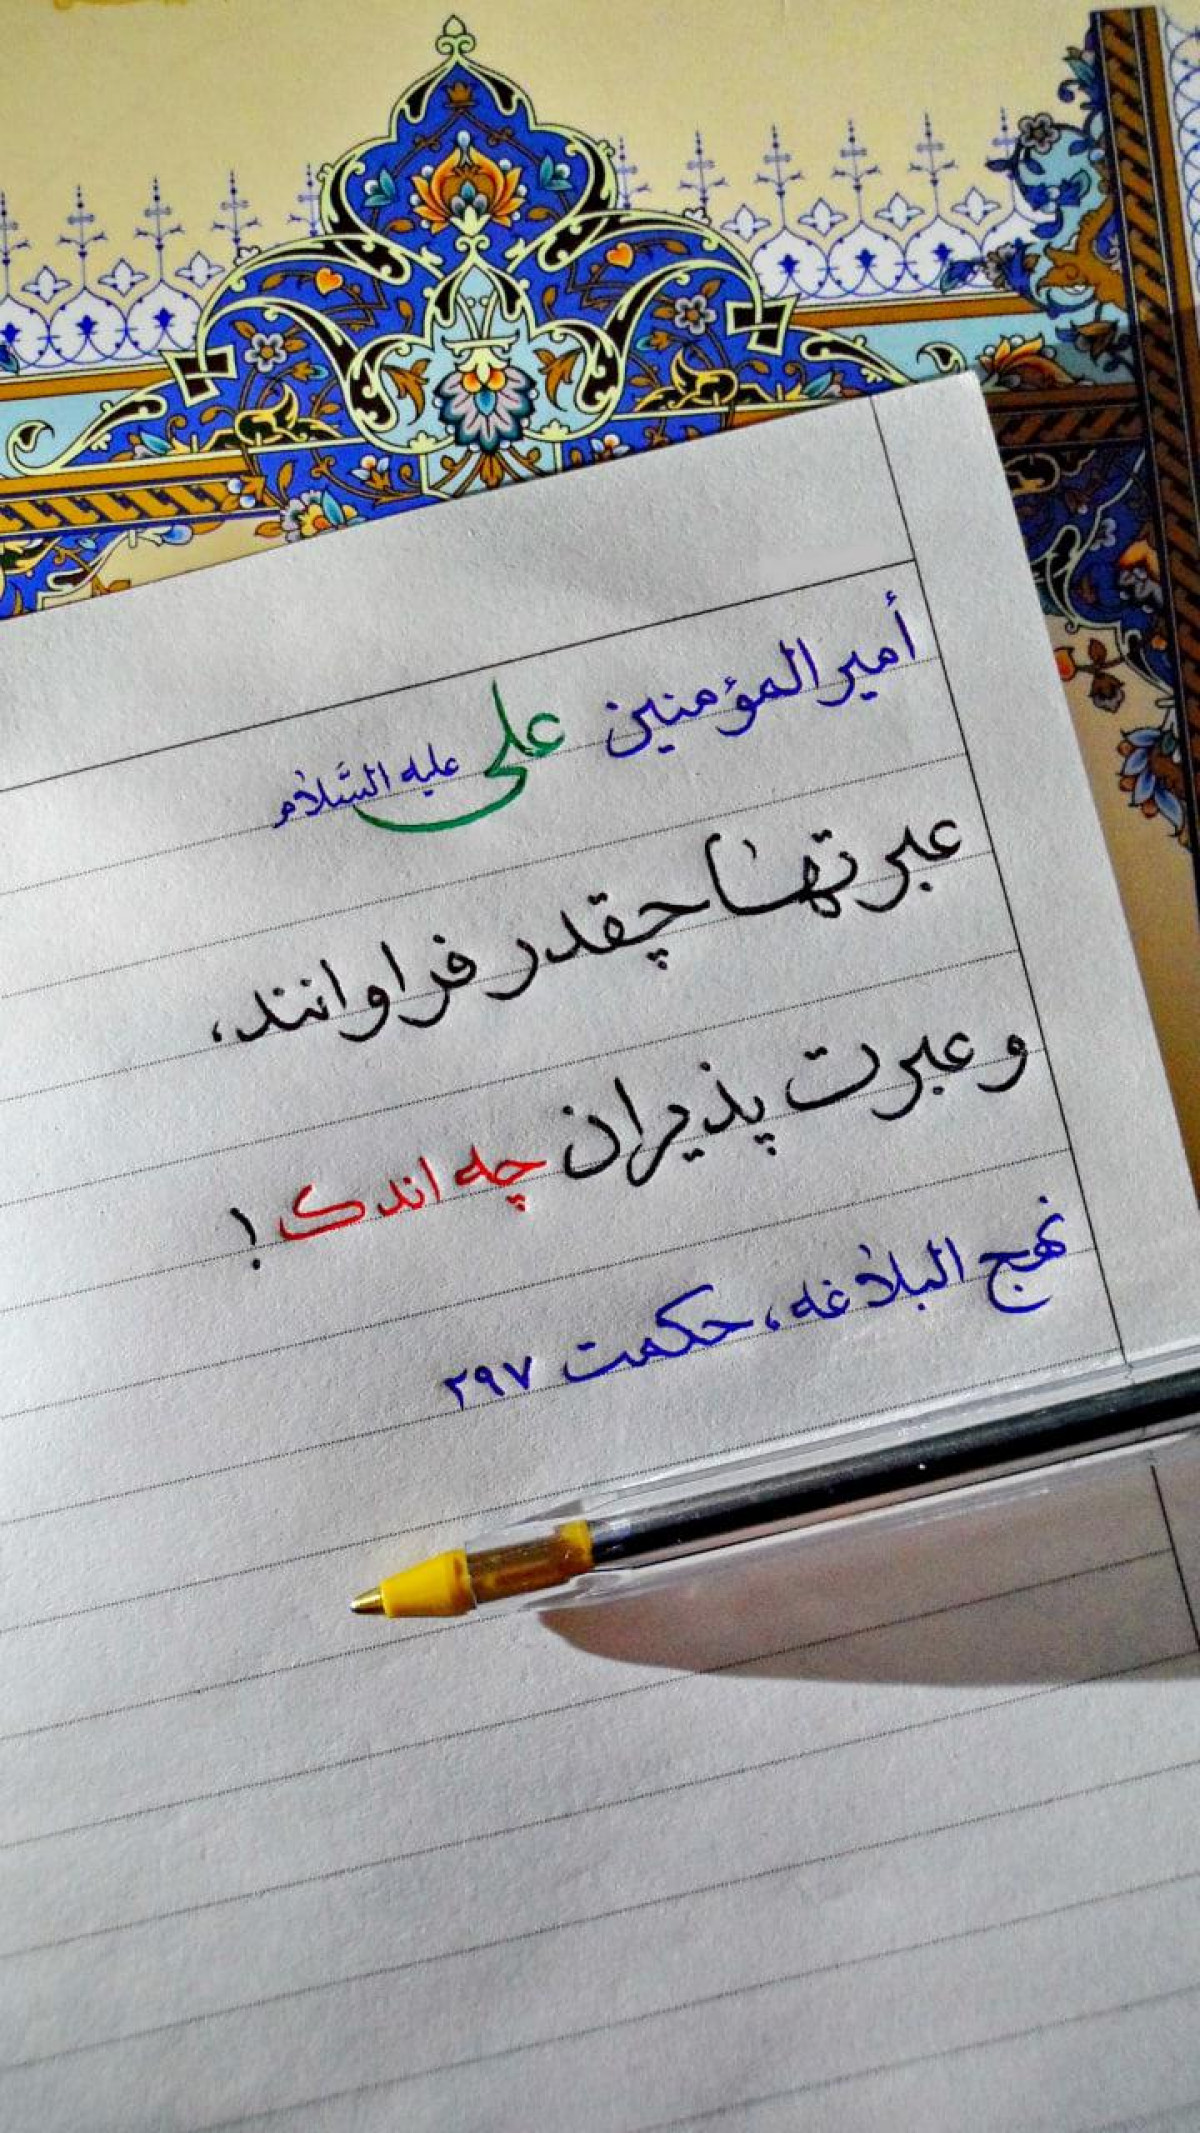 أمیرالمؤمنین علی علیه السَّلام
عبرتها چقدر فراوانند،
و عبرت پذیران چه اندک !
نهج البلاغه، حکمت ۲۹۷